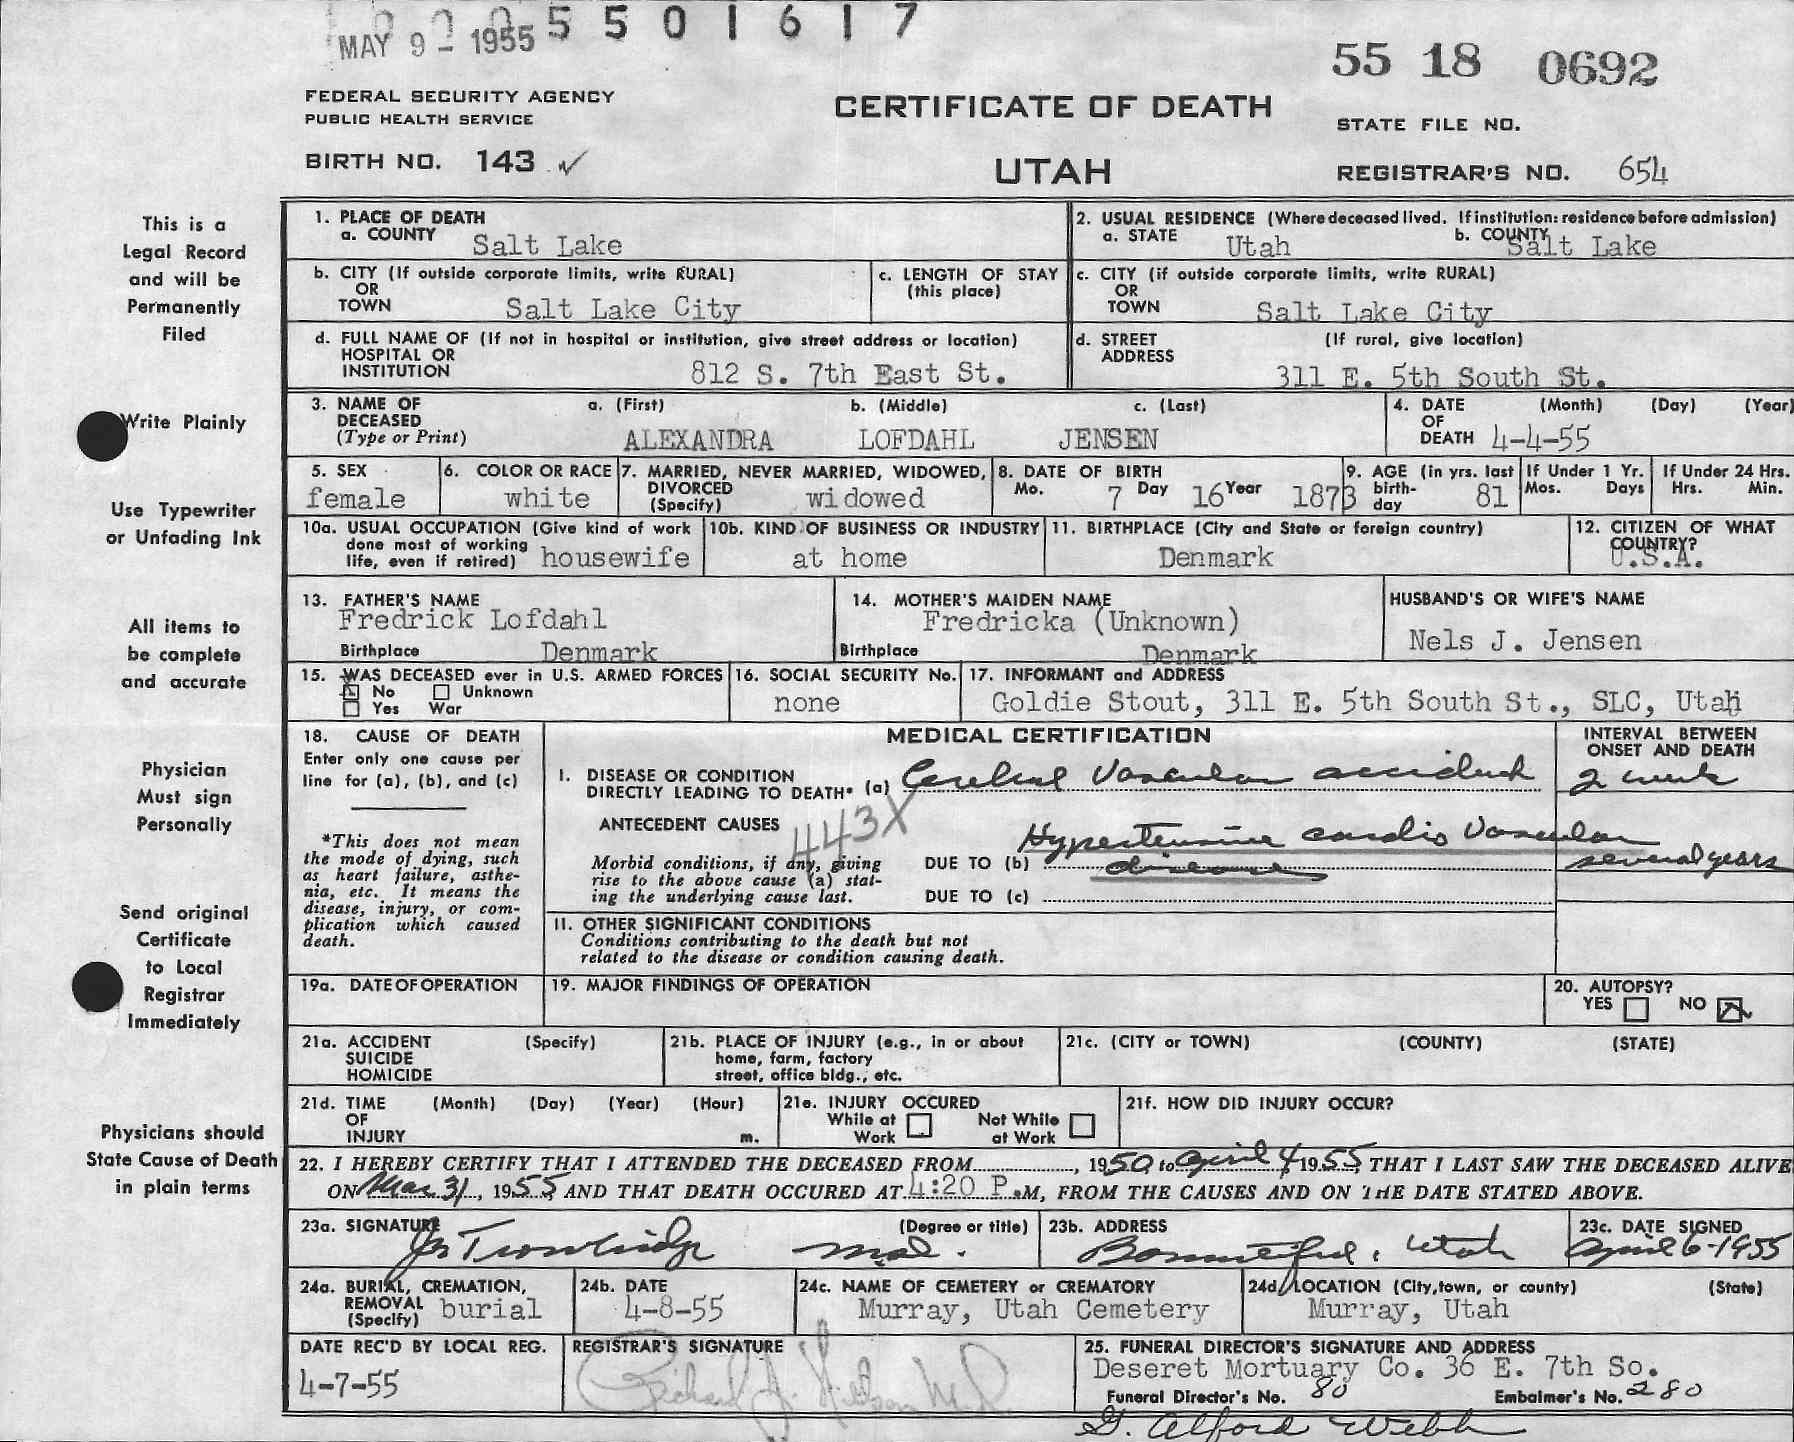 MAY 9 - 1955 5 5 0 1 6 1 7
55 18 0692
FEDERAL SECURITY AGENCY
PUBLIC HEALTH SERVICE
CERTIFICATE OF DEATH
STATE FILE NO.
BIRTH NO. 143 ✓
UTAH
REGISTRAR'S NO. 654
This is a
Legal Record
and will be
Permanently
Filed
Write Plainly
Use Typewriter
or Unfading Ink
All items to
be complete
and accurate
Physician
Must sign
Personally
Send original
Certificate
to Local
Registrar
Immediately
Physicians should
State Cause of Death
in plain terms
1. PLACE OF DEATH
a. COUNTY Salt Lake
2. USUAL RESIDENCE (Where deceased lived. If institution: residence before admission)
a. STATE Utah b. COUNTY Salt Lake
b. CITY (If outside corporate limits, write RURAL)
OR
TOWN Salt Lake City
c. LENGTH OF STAY
(this place)
c. CITY (if outside corporate limits, write RURAL)
OR
TOWN Salt Lake City
d. FULL NAME OF (If not in hospital or institution, give street address or location)
HOSPITAL OR
INSTITUTION 812 S. 7th East St.
d. STREET (If rural, give location)
ADDRESS
311 E. 5th South St.
3. NAME OF a. (First) b. (Middle) c. (Last)
DECEASED
(Type or Print) ALEXANDRA LOFDAHL JENSEN
4. DATE (Month) (Day) (Year)
OF
DEATH 4-4-55
5. SEX
female
6. COLOR OR RACE
white
7. MARRIED, NEVER MARRIED, WIDOWED,
DIVORCED
(Specify) widowed
8. DATE OF BIRTH
Mo. 7 Day 16 Year 1873
9. AGE (in yrs. last
birth-
day 81
If Under 1 Yr.
Mos. Days
If Under 24 Hrs.
Hrs. Min.
10a. USUAL OCCUPATION (Give kind of work
done most of working
life, even if retired) housewife
10b. KIND OF BUSINESS OR INDUSTRY
at home
11. BIRTHPLACE (City and State or foreign country)
Denmark
12. CITIZEN OF WHAT
COUNTRY?
U.S.A.
13. FATHER'S NAME
Fredrick Lofdahl
Birthplace Denmark
14. MOTHER'S MAIDEN NAME
Fredricka (Unknown)
Birthplace Denmark
HUSBAND'S OR WIFE'S NAME
Nels J. Jensen
15. WAS DECEASED ever in U.S. ARMED FORCES
No Unknown
Yes War
16. SOCIAL SECURITY No.
none
17. INFORMANT and ADDRESS
Goldie Stout, 311 E. 5th South St., SLC, Utah
18. CAUSE OF DEATH
Enter only one cause per
line for (a), (b), and (c)
*This does not mean
the mode of dying, such
as heart failure, asthe-
nia, etc. It means the
disease, injury, or com-
plication which caused
death.
MEDICAL CERTIFICATION
INTERVAL BETWEEN
ONSET AND DEATH
I. DISEASE OR CONDITION
DIRECTLY LEADING TO DEATH* (a) Cerebral Vascular accident 2 week
ANTECEDENT CAUSES 443X
Morbid conditions, if any, giving
rise to the above cause (a) stat-
ing the underlying cause last.
DUE TO (b) Hypertensive cardio Vascular
disease several years
DUE TO (c)
II. OTHER SIGNIFICANT CONDITIONS
Conditions contributing to the death but not
related to the disease or condition causing death.
19a. DATE OF OPERATION
19. MAJOR FINDINGS OF OPERATION
20. AUTOPSY?
YES NO
21a. ACCIDENT (Specify)
SUICIDE
HOMICIDE
21b. PLACE OF INJURY (e.g., in or about
home, farm, factory
street, office bldg., etc.
21c. (CITY or TOWN) (COUNTY) (STATE)
21d. TIME (Month) (Day) (Year) (Hour)
OF
INJURY m.
21e. INJURY OCCURED
While at Not While
Work at Work
21f. HOW DID INJURY OCCUR?
22. I HEREBY CERTIFY THAT I ATTENDED THE DECEASED FROM............, 1950 to April 4, 1955, THAT I LAST SAW THE DECEASED ALIVE
ON Mar 31, 1955, AND THAT DEATH OCCURED AT 4:20 P.M, FROM THE CAUSES AND ON THE DATE STATED ABOVE.
23a. SIGNATURE (Degree or title)
Trowbridge M.D.
23b. ADDRESS
Bountiful, Utah
23c. DATE SIGNED
April 6-1955
24a. BURIAL, CREMATION,
REMOVAL
(Specify) burial
24b. DATE
4-8-55
24c. NAME OF CEMETERY or CREMATORY
Murray, Utah Cemetery
24d. LOCATION (City, town, or county) (State)
Murray, Utah
DATE REC'D BY LOCAL REG.
4-7-55
REGISTRAR'S SIGNATURE
Richard J. Nelson M.D.
25. FUNERAL DIRECTOR'S SIGNATURE AND ADDRESS
Deseret Mortuary Co. 36 E. 7th So.
Funeral Director's No. 80 Embalmer's No. 280
G. Alford Webb